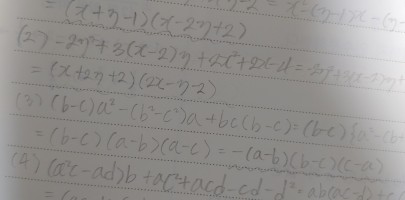 = (x+y-1)(x-2y+2)
(2) -2y²+3(x-2)y+2x²+2x-4 =
= (x+2y+2)(2x-y-2)
(3) (b-c)a²-(b²-c²)a+bc(b-c)=(b-c){a²-(b
= (b-c)(a-b)(a-c) = -(a-b)(b-c)(c-a)
(4) (a²c-ad)b+ac²+acd-cd-d²=ab(ac-d)+c